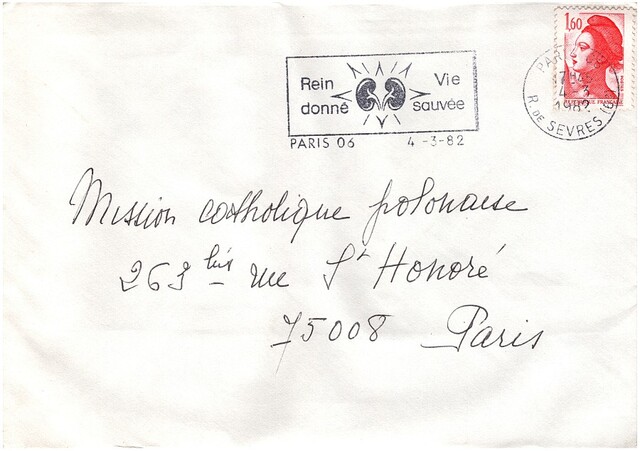 1,60
Rein Vie
donné sauvée
PARIS 06 4 -3-82
PARIS
17H45
4 - 3
1982
R. DE SEVRES (6e)
Mission catholique polonaise
263 bis rue St Honoré
75008 Paris